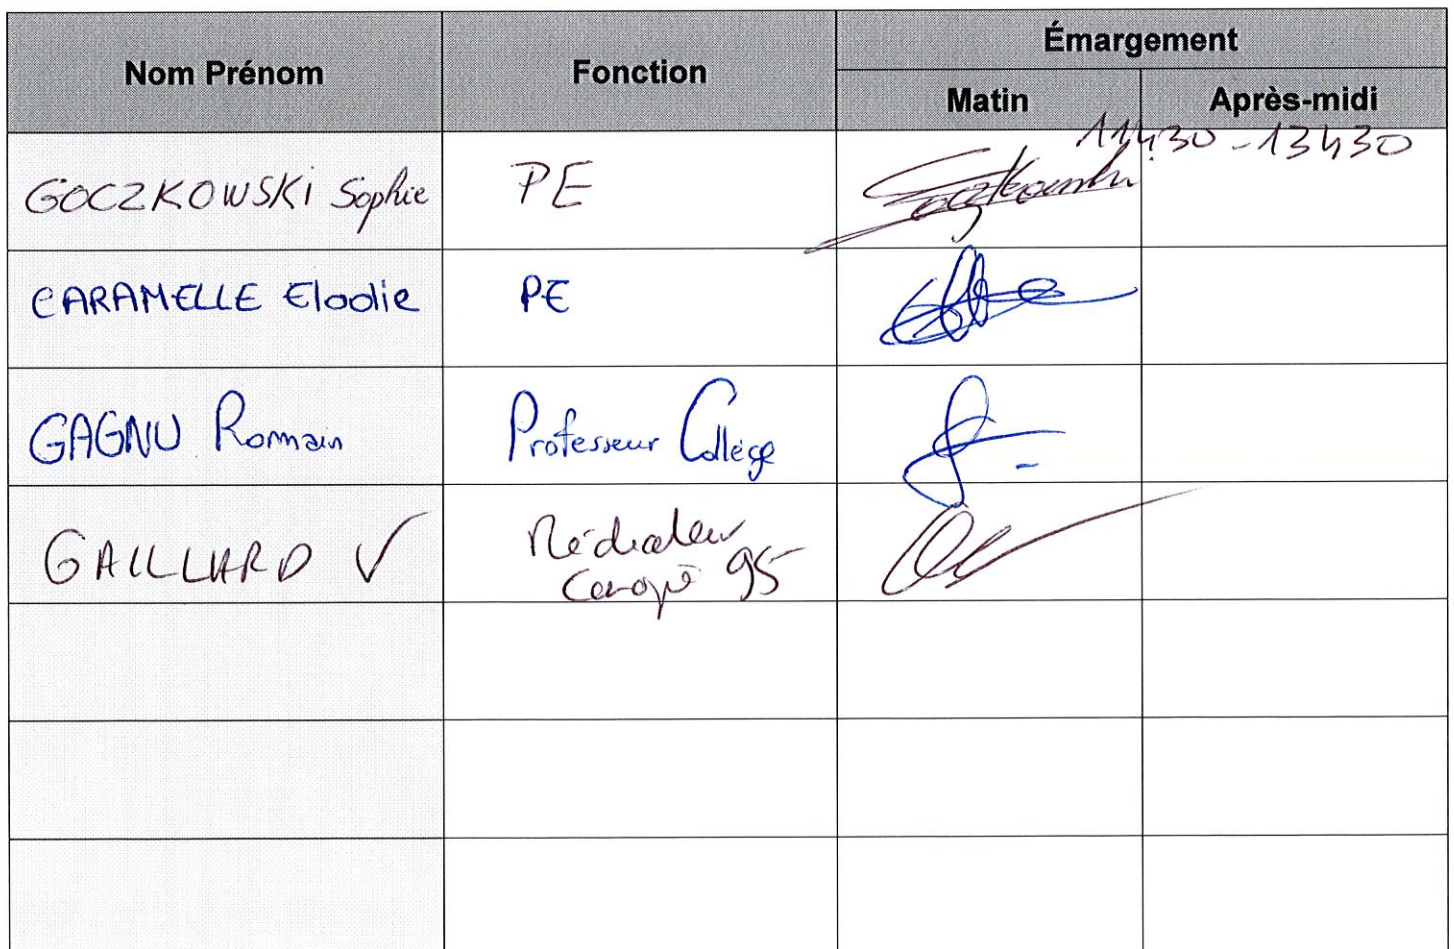 Nom Prénom Fonction Émargement
Matin Après-midi
11h30 - 13h30
GOCZKOWSKI Sophie PE
CARAMELLE Elodie PE
GAGNU Romain Professeur Collège
GAILLARD V Médiateur
95